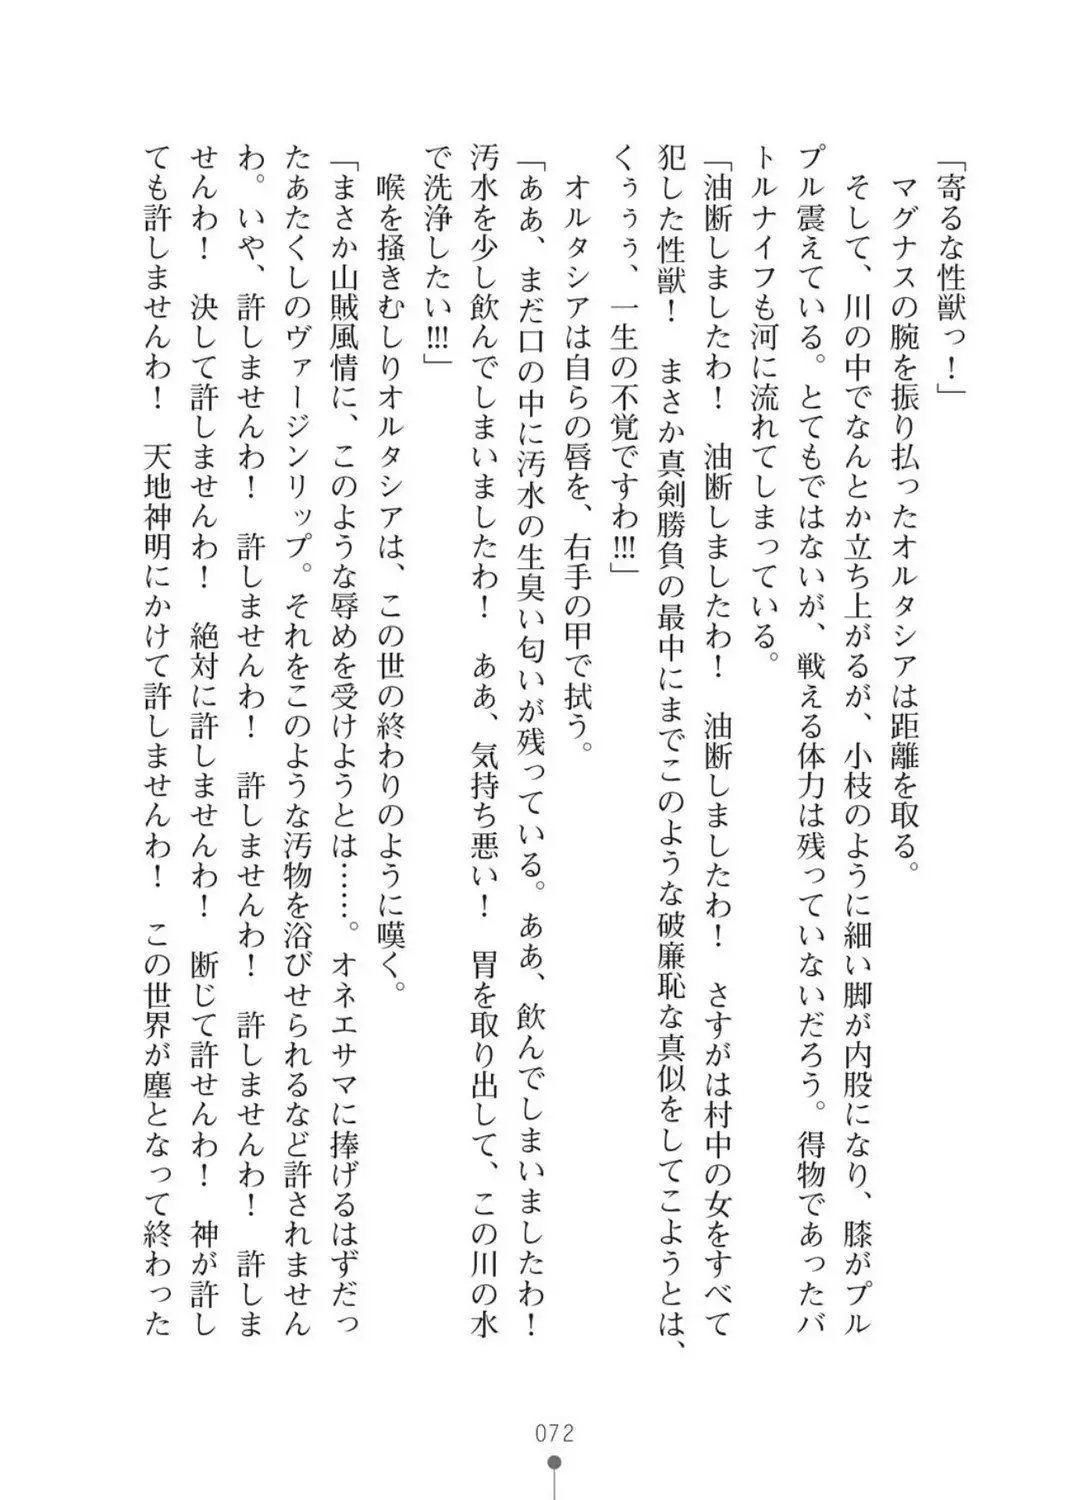 「寄るな性獣っ！」
　マグナスの腕を振り払ったオルタシアは距離を取る。
　そして、川の中でなんとか立ち上がるが、小枝のように細い脚が内股になり、膝がプル
プル震えている。とてもではないが、戦える体力は残っていないだろう。得物であったバ
トルナイフも河に流れてしまっている。
「油断しましたわ！　油断しましたわ！　油断しましたわ！　さすがは村中の女をすべて
犯した性獣！　まさか真剣勝負の最中にまでこのような破廉恥な真似をしてこようとは、
くぅぅぅ、一生の不覚ですわ!!!」
　オルタシアは自らの唇を、右手の甲で拭う。
「ああ、まだ口の中に汚水の生臭い匂いが残っている。ああ、飲んでしまいましたわ！
汚水を少し飲んでしまいましたわ！　ああ、気持ち悪い！　胃を取り出して、この川の水
で洗浄したい!!!」
　喉を掻きむしりオルタシアは、この世の終わりのように嘆く。
「まさか山賊風情に、このような辱めを受けようとは……。オネエサマに捧げるはずだっ
たあたくしのヴァージンリップ。それをこのような汚物を浴びせられるなど許されません
わ。いや、許しませんわ！　許しませんわ！　許しませんわ！　許しませんわ！　許しま
せんわ！　決して許しませんわ！　絶対に許しませんわ！　断じて許せんわ！　神が許し
ても許しませんわ！　天地神明にかけて許しませんわ！　この世界が塵となって終わった
072